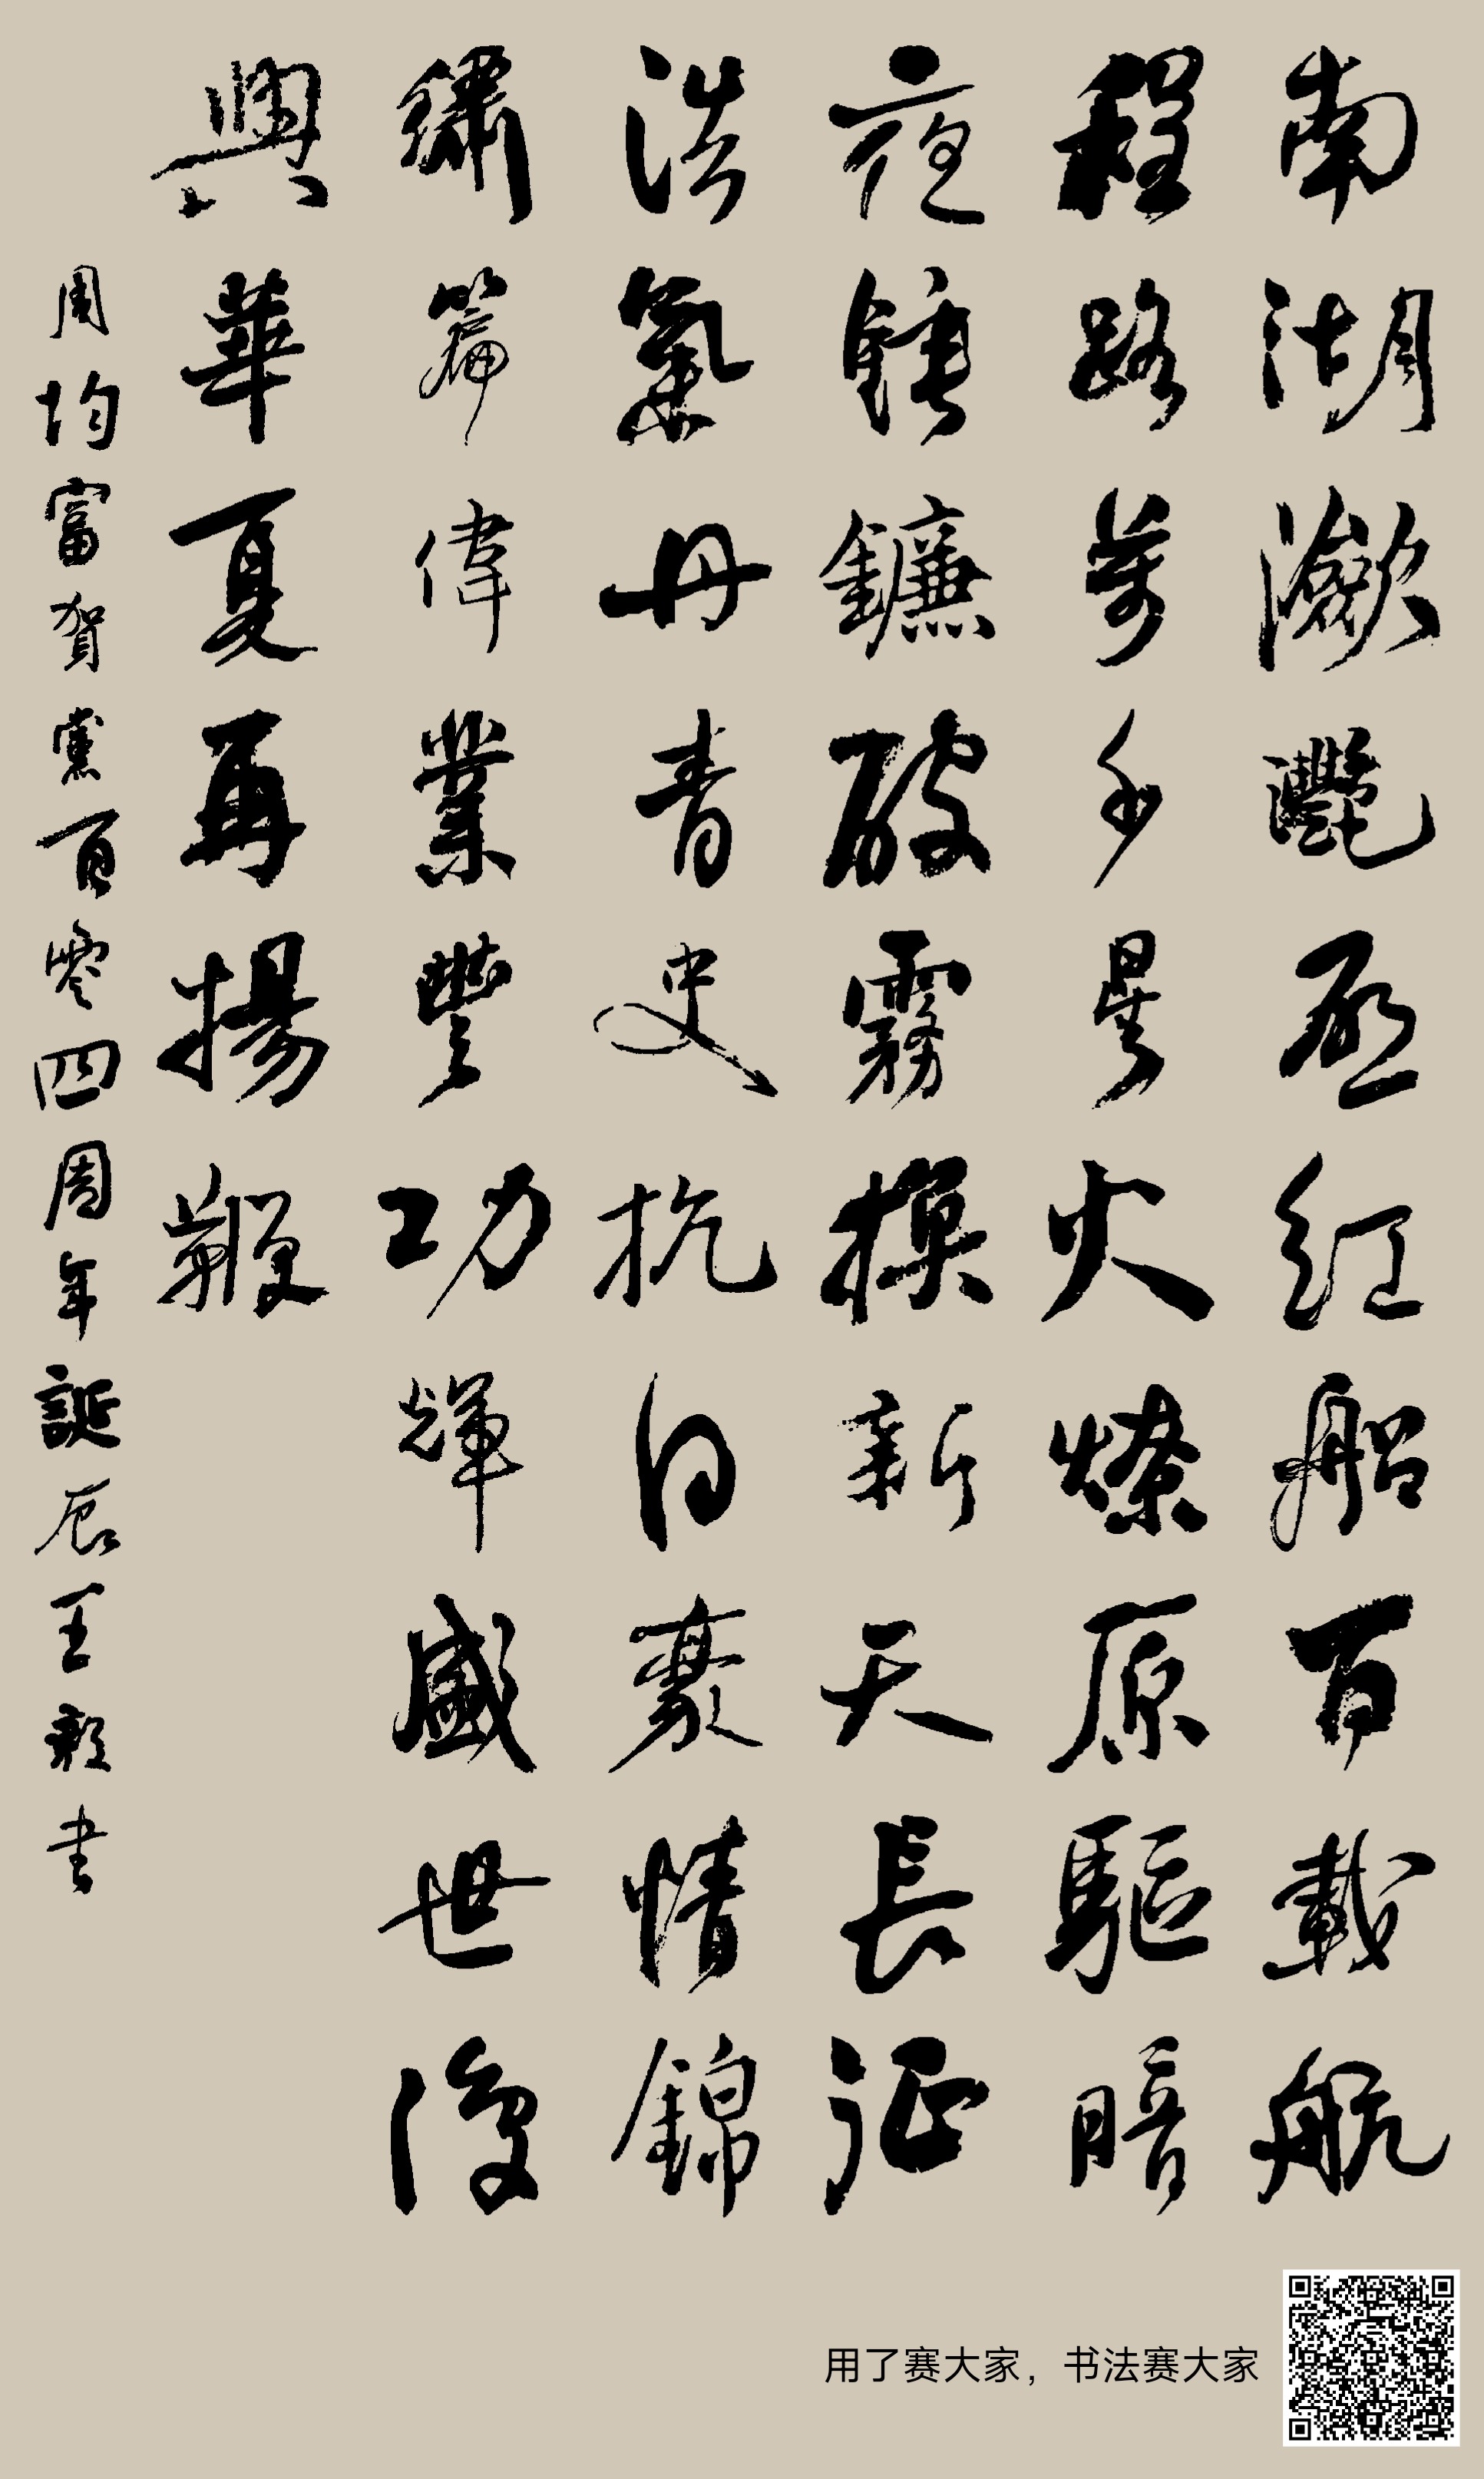 南湖瀲灩启紅船百載航
程路萬千星火燎原驅暗
夜錘鐮破霧換新天長征
浩氣丹青史抗日豪情錦
繡篇偉業豐功輝盛世復
興華夏再揚鞭
周均富賀黨百零四周年誕辰王毅書
用了赛大家，书法赛大家